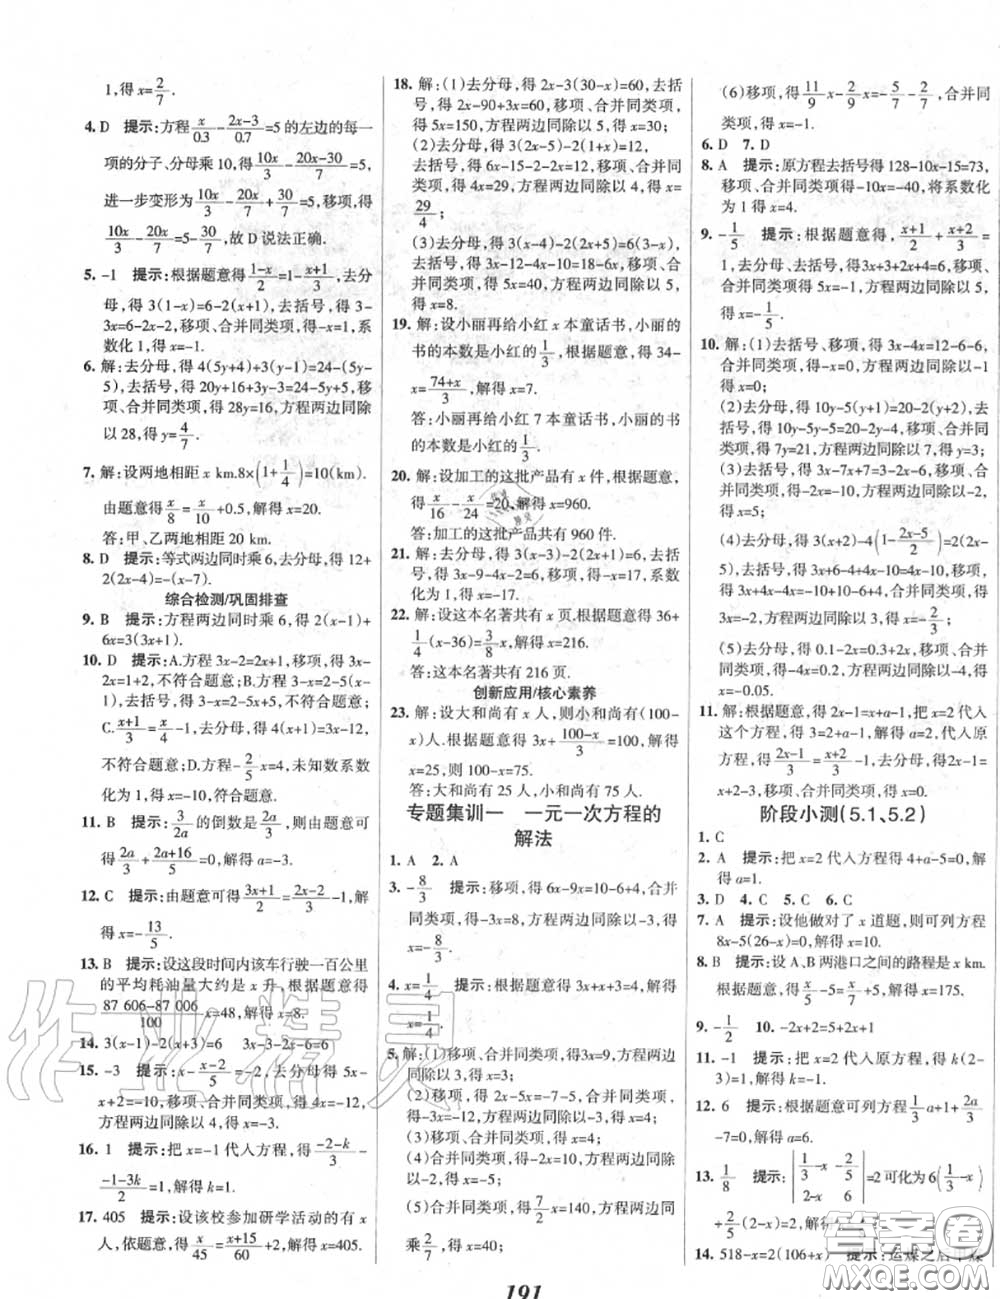 1,得 x=2/7.
4. D 提示:方程 x/0.3-(2x-3)/0.7=5 的左边的每一
项的分子、分母乘 10,得 10x/3-(20x-30)/7=5,
进一步变形为 10x/3-20x/7+30/7=5,移项,得
10x/3-20x/7=5-30/7,故 D 说法正确.
5. -1 提示:根据题意得 (1-x)/2=1-(x+1)/3,去分
母,得 3(1-x)=6-2(x+1),去括号,得 3-
3x=6-2x-2,移项、合并同类项,得-x=1,系
数化 1,得 x=-1.
6. 解:去分母,得 4(5y+4)+3(y-1)=24-(5y-
5),去括号,得 20y+16+3y-3=24-5y+5,移
项、合并同类项,得 28y=16,方程两边同除
以 28,得 y=4/7.
7. 解:设两地相距 x km.8×(1+1/4)=10(km).
由题意得 x/8=x/10+0.5,解得 x=20.
答:甲、乙两地相距 20 km.
8. D 提示:等式两边同时乘 6,去分母,得 12+
2(2x-4)=-(x-7).
综合检测/巩固排查
9. B 提示:方程两边同时乘 6,得 2(x-1)+
6x=3(3x+1).
10. D 提示:A.方程 3x-2=2x+1,移项,得 3x-
2x=1+2,不符合题意;B.方程 3-x=2-5(x-
1),去括号,得 3-x=2-5x+5,不符合题意;
C.(x+1)/3=(x-1)/4,去分母,得 4(x+1)=3x-1,
不符合题意;D.方程-2/5x=4,未知数系数
化为 1,得 x=-10,符合题意.
11. B 提示:3/2a 的倒数是 2a/3,则由题意可
得 2a/3+(2a+16)/5=0,解得 a=-3.
12. C 提示:由题意可得 (3x+1)/2=(2x-2)/3-1,解
得 x=-13/5.
13. B 提示:设这段时间内该车行驶一百公里
的平均耗油量大约是 x 升,根据题意得
(87 606-87 006)/100 x=48,解得 x=8.
14. 3(x-1)-2(x+3)=6 3x-3-2x-6=6
15. -3 提示:x-(x-2)/5=-2,去分母得 5x-
x+2=-10,移项、合并同类项,得 4x=-12,
方程两边同除以 4,得 x=-3.
16. 1 提示:把 x=-1 代入方程,得 (-2-k)/3-
(-1-3k)/2=1,解得 k=1.
17. 405 提示:设该校参加研学活动的有 x
人,依题意,得 x/45=(x+15)/60+2,解得 x=405.
18. 解:(1)去分母,得 2x-3(30-x)=60,去括
号,得 2x-90+3x=60,移项、合并同类项,得
5x=150,方程两边同除以 5,得 x=30;
(2)去分母,得 3(2x-5)-2(1+x)=12,
去括号,得 6x-15-2-2x=12,移项、合并同类
项,得 4x=29,方程两边同除以 4,得 x=
29/4;
(3)去分母,得 3(x-4)-2(2x+5)=6(3-x),
去括号,得 3x-12-4x-10=18-6x,移项、合
并同类项,得 5x=40,方程两边同除以 5,
得 x=8.
19. 解:设小丽再给小红 x 本童话书,小丽的
书的本数是小红的 1/3,根据题意,得 34-
x=(74+x)/3,解得 x=7.
答:小丽再给小红 7 本童话书,小丽的书
的本数是小红的 1/3.
20. 解:设加工的这批产品有 x 件,根据题意,
得 x/16-x/24=20,解得 x=960.
答:加工的这批产品共有 960 件.
21. 解:去分母,得 3(x-3)-2(2x+1)=6,去括
号,得 3x-9-4x-2=6,移项、合并同类项,系数
化为 1,得 x=-17.
22. 解:设这本名著共有 x 页,根据题意得 36+
1/4(x-36)=3/8x,解得 x=216.
答:这本名著共有 216 页.
创新应用/核心素养
23. 解:设大和尚有 x 人,则小和尚有(100-
x)人.根据题意,得 3x+(100-x)/3=100,解得
x=25,则 100-x=75.
答:大和尚有 25 人,小和尚有 75 人.
专题集训一 一元一次方程的
解法
1. A 2. A
3. -8/3 提示:移项,得 6x-9x=10-5+3,合并
同类项,得-3x=8,方程两边同除以-3,得
x=-8/3.
4. x=1/4 提示:根据题意得 3x+x+3=4,解得
x=1/4.
5. 解:(1)移项、合并同类项,得 3x=9,方程两边
同除以 3,得 x=3;
(2)移项,得 2x-5x=-7-5,合并同类项,得
-3x=-12,方程两边同除以-3,得 x=4;
(3)移项、合并同类项,得 x=4;
(4)合并同类项,得-2x=10,方程两边同除
以-2,得 x=-5;
(5)合并同类项,得 7/2x=140,方程两边同
乘 2/7,得 x=40;
(6)移项,得 11/9x-2/9x=-5/7-2/7,合并同
类项,得 x=-1.
6. D 7. D
8. A 提示:原方程去括号得 128-10x-15=73,
移项、合并同类项得-10x=-40,将系数化
为 1 得 x=4.
9. -1/5 提示:根据题意,得 (x+1)/2+(x+2)/3=
1,去分母,得 3x+3+2x+4=6,移项、合并同
类项,得 5x=-1,方程两边同除以 5,
得 x=-1/5.
10. 解:(1)去括号、移项,得 9x-4x=12-6-6,
合并同类项,得 5x=0,方程两边同除以 5,
得 x=0;
(2)去分母,得 10y-5(y+1)=20-2(y+2),去
括号,得 10y-5y-5=20-2y-4,移项、合并同
类项,得 7y=21,方程两边同除以 7,得 y=3;
(3)去括号,得 3x-5x-10=2,移项、合并同
类项,得-2x=12,方程两边同除以-2,得
x=-6;
(4)去分母,得 3(2x+1)-4(1-(2x-5)/4)=2(2x-
5),去括号,得 6x+3-4+2x-5=4x-10,移项
得 3x+6x-4x=-10+10-6,合并同类项,得
3x=-2,方程两边同除以 3,得 x=-2/3;
(5)去括号,得 x-0.5-0.2=0.3x+0.5x-0.7,
移项得 x-0.3x-0.5x=-0.7+0.5+0.2,合并同
类项得-4x=0.2,方程两边同除以-4,得
x=-0.05.
11. 解:根据题意,得 2x-1=x+a-1,把 x=2 代入
这个方程,得 3=2+a-1,解得 a=2,代入原
方程,得 (2x-1)/3=(x+2)/3-1,去分母得 2x-1=
x+2-3,移项、合并同类项得 x=0.
阶段小测(5.1、5.2)
1. C
2. A 提示:把 x=2 代入方程得 4+a-5=0,解
得 a=1.
3. D 4. C 5. C 6. C
7. A 提示:设他做对了 x 道题,则可列方程
8x-5(26-x)=0,解得 x=10.
8. B 提示:设 A、B 两港口之间的路程是 x km.
根据题意,得 x/25=x/35+5,解得 x=175.
9. -1/2 10. -2x+2=5+2x
11. -1 提示:把 x=2 代入原方程,得 k(2-
3)=1,解得 k=-1.
12. 6 提示:根据题意可列方程 1/3a+1+2a/3
-7=0,解得 a=6.
13. 1/8 提示:|1/3-x 2/5; 2-x 6|=2 可化为 6(1/3-x)
+2/5(2-x)=2,解得
14. 518-x=2(106+x) 提示:运煤之后
191
作业精灵
答案圈
MXQE.COM